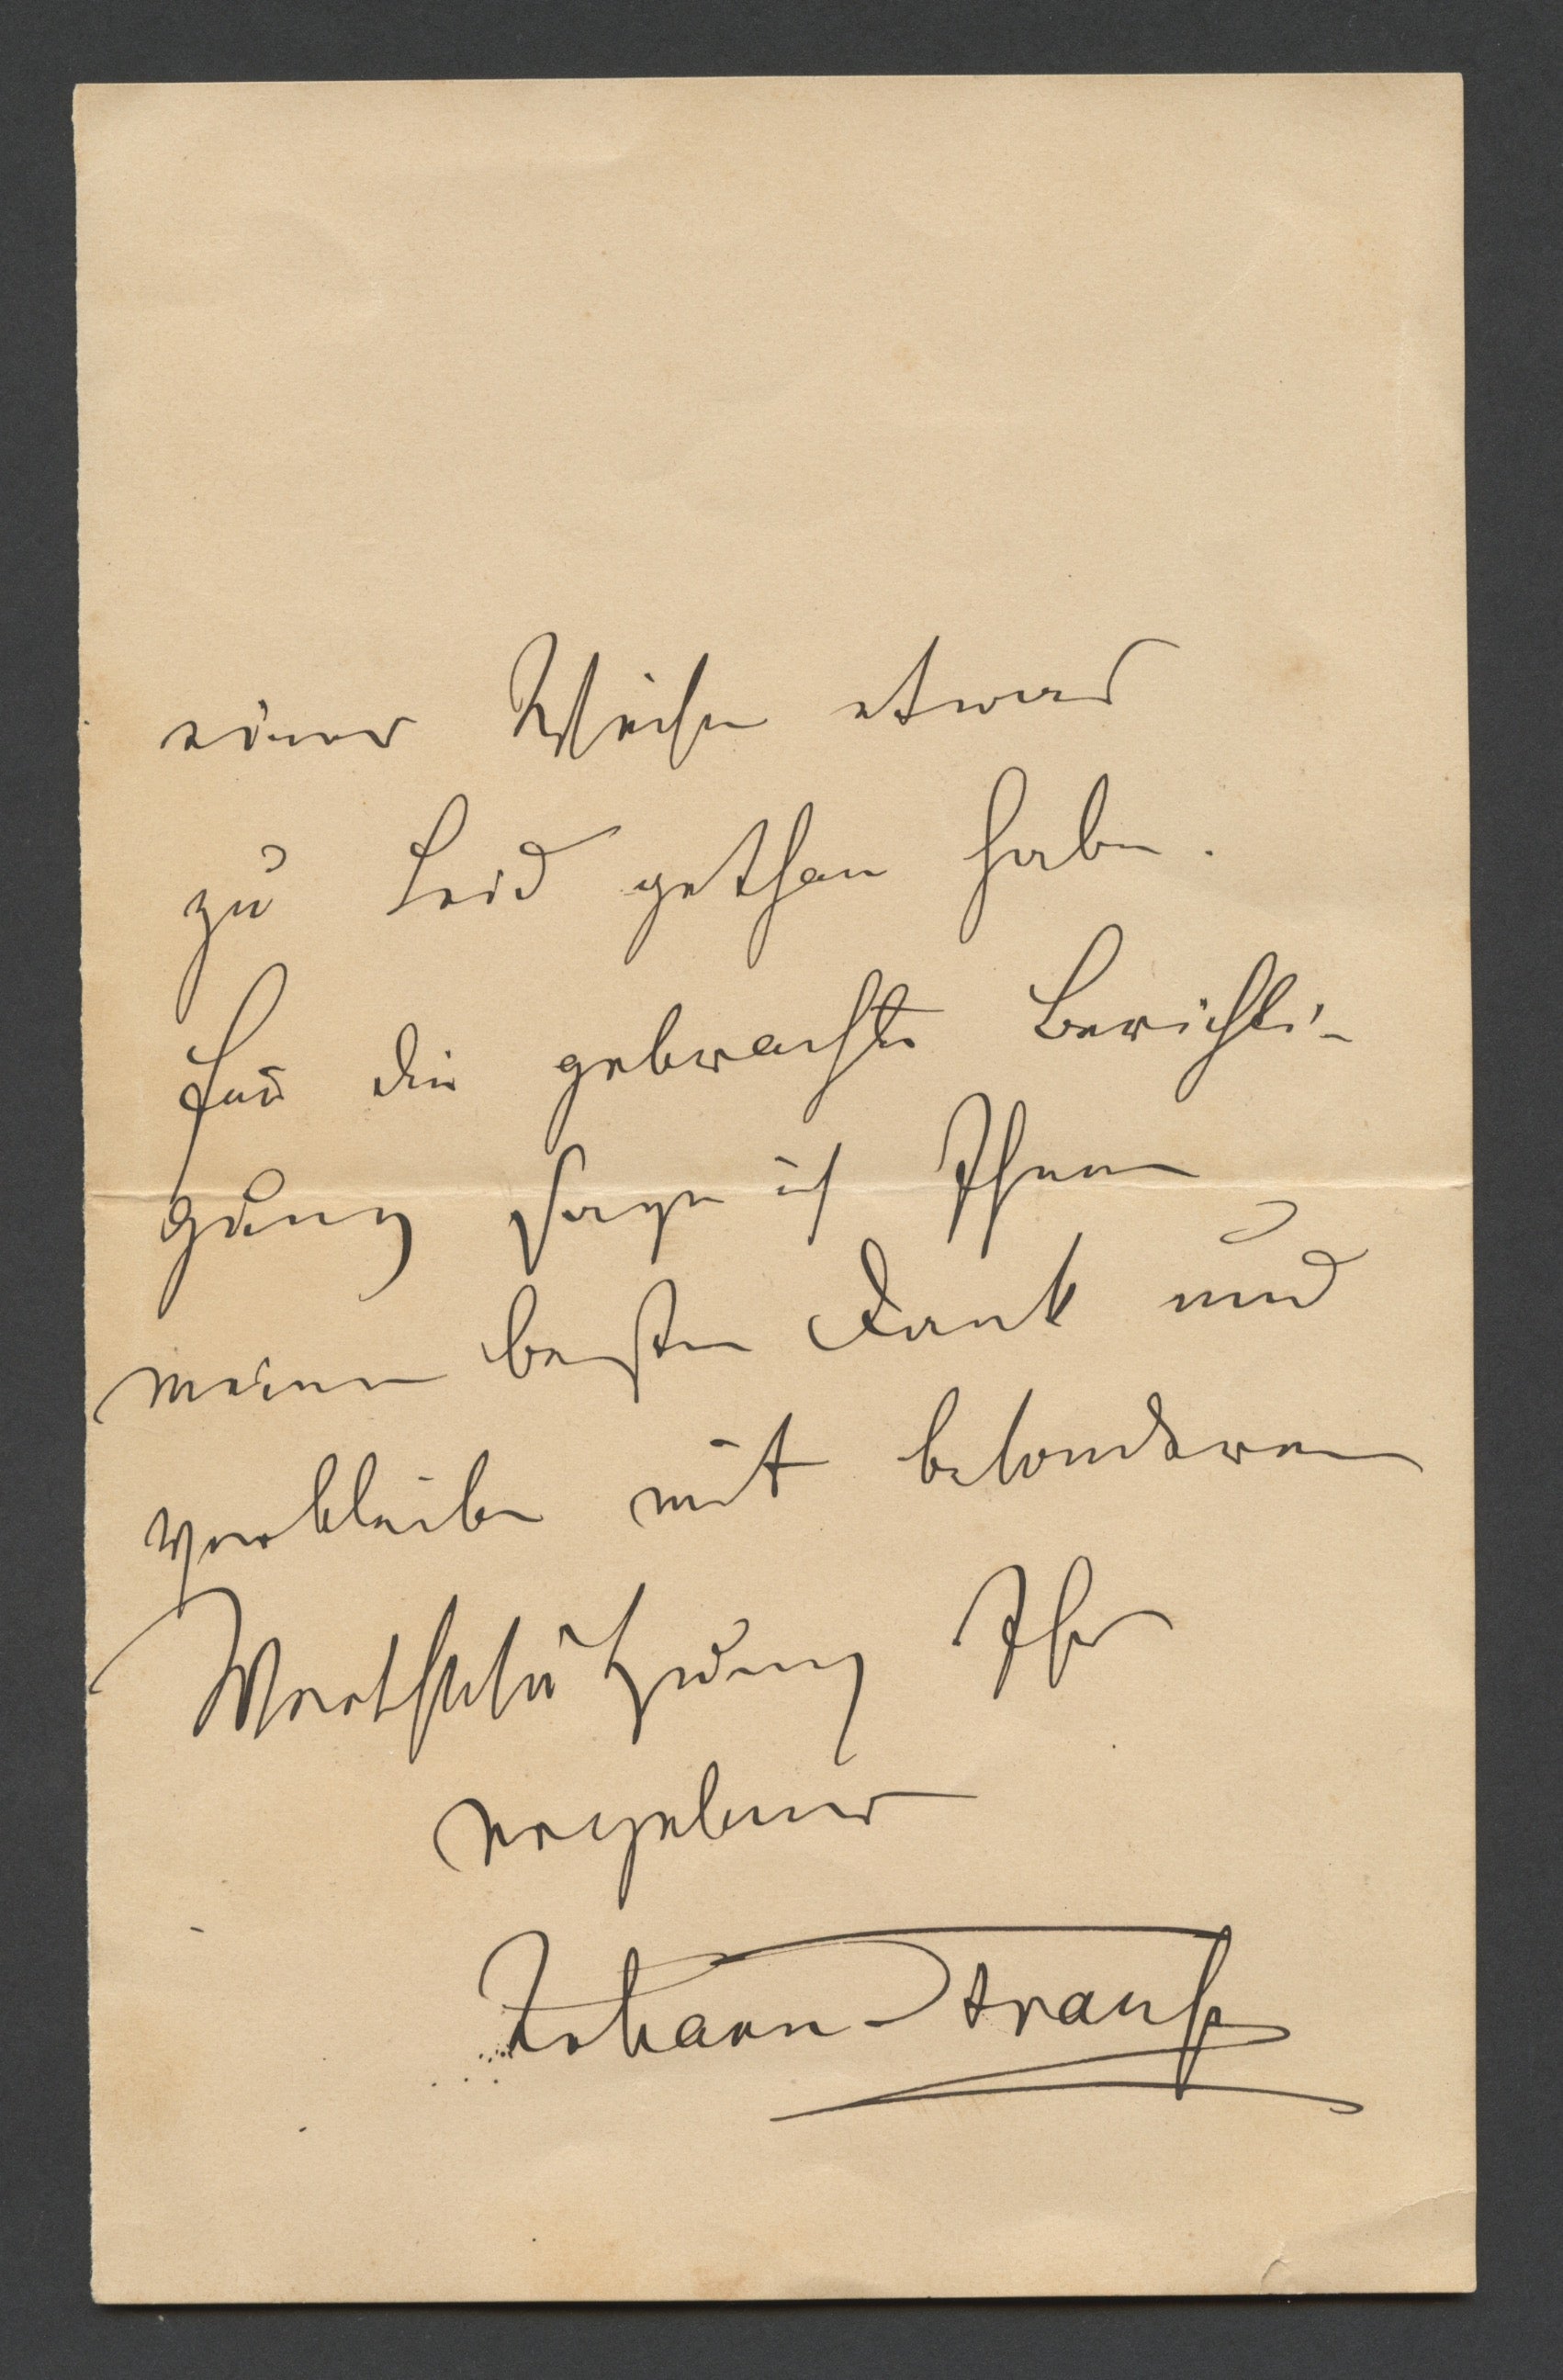 einer Weise etwas
zu Leid gethan habe.
Für die gebrachte Berichti-
gung sage ich Ihnen
meinen besten Dank und
verbleibe mit besonderer
Werthschätzung Ihr
ergebener
Johann Strauß